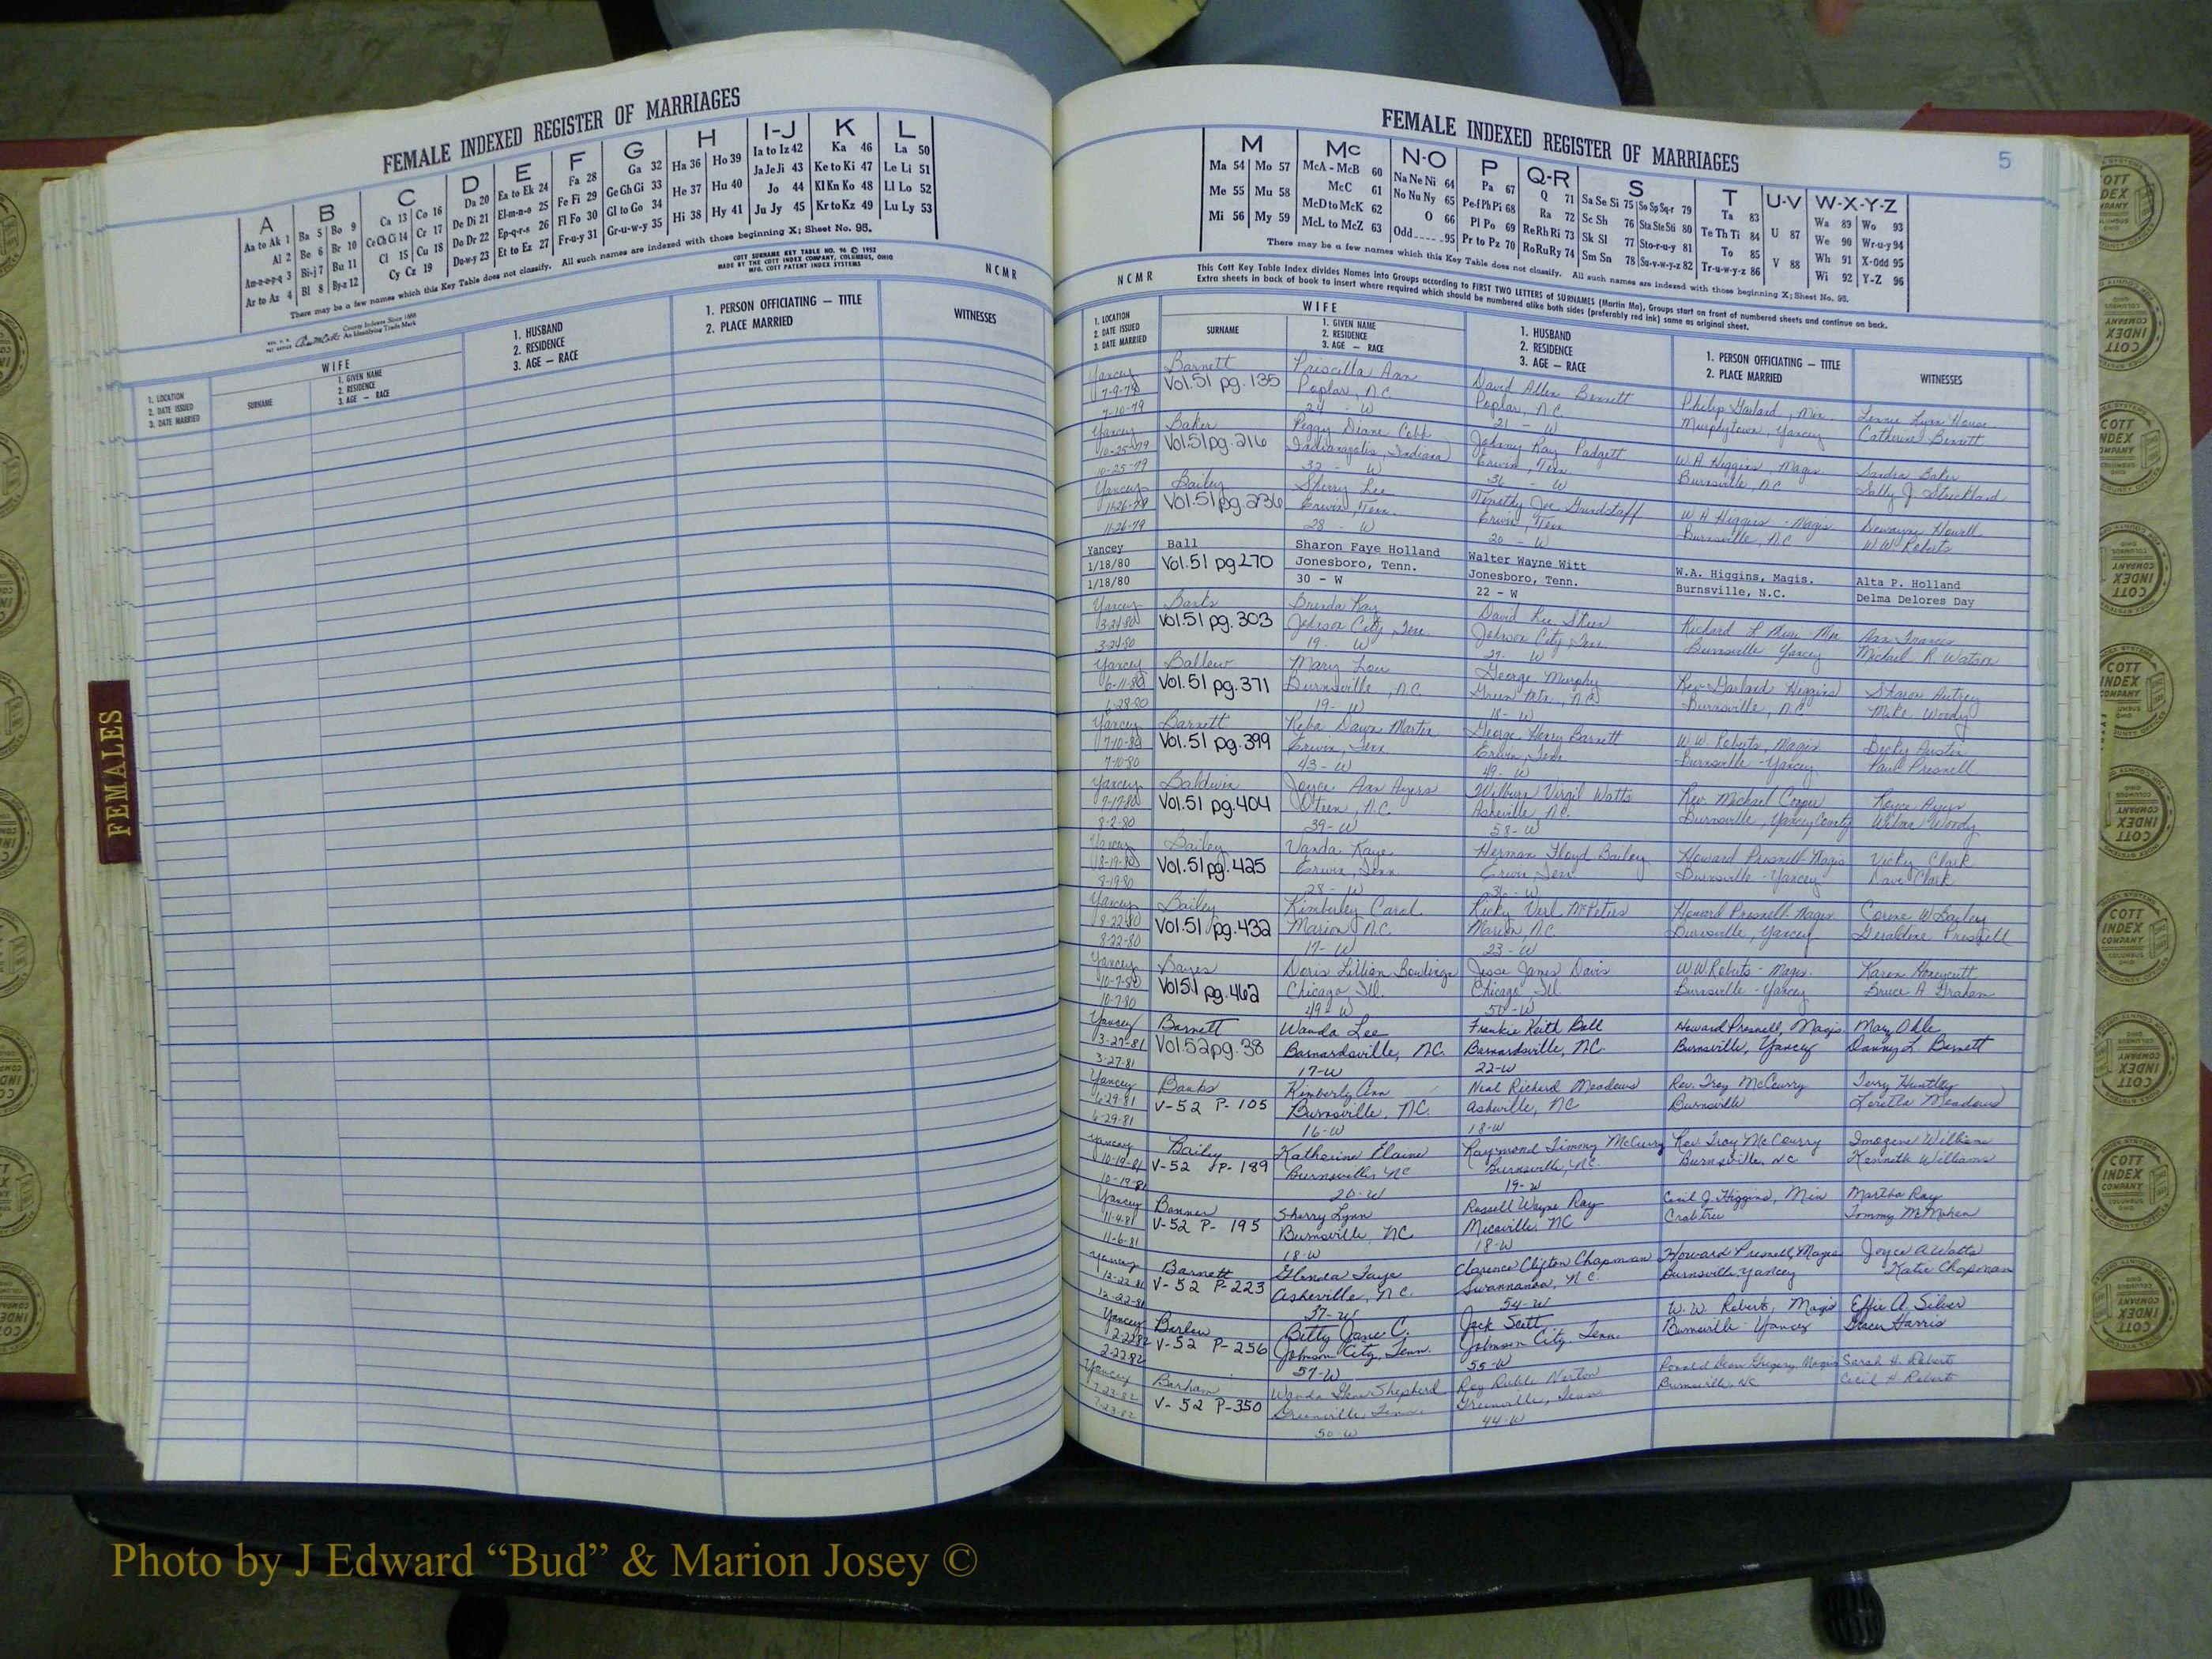 FEMALE INDEXED REGISTER OF MARRIAGES
A B C D E F G H I-J K L
Aa to Ak 1 Ba 5 Bo 9 Ca 13 Co 16 Da 20 Ea to Ek 24 Fa 28 Ga 32 Ha 36 Ho 39 Ia to Iz 42 Ka 46 La 50
Al 2 Be 6 Br 10 Ce Ch Ci 14 Cr 17 De Di 21 El-m-n-o 25 Fe Fi 29 Ge Gh Gi 33 He 37 Hu 40 Ja Je Ji 43 Ke to Ki 47 Le Li 51
Am-n-o-p-q 3 Bi-j 7 Bu 11 Cl 15 Cu 18 Do Dr 22 Ep-q-r-s 26 Fl Fo 30 Gl to Go 34 Hi 38 Hy 41 Jo 44 Kl Kn Ko 48 Ll Lo 52
Ar to Az 4 Bl 8 By-z 12 Cy Cz 19 Du-w-y 23 Et to Ez 27 Fr-u-y 31 Gr-u-w-y 35 Ju Jy 45 Kr to Kz 49 Lu Ly 53
There may be a few names which this Key Table does not classify. All such names are indexed with those beginning X; Sheet No. 95.
COTT SURNAME KEY TABLE NO. 96 © 1952
MADE BY THE COTT INDEX COMPANY, COLUMBUS, OHIO
MFG. COTT PATENT INDEX SYSTEMS
NCMR
County Indexes Since 1888
An Identifying Trade Mark
WIFE
1. LOCATION
2. DATE ISSUED
3. DATE MARRIED
SURNAME
1. GIVEN NAME
2. RESIDENCE
3. AGE — RACE
1. HUSBAND
2. RESIDENCE
3. AGE — RACE
1. PERSON OFFICIATING — TITLE
2. PLACE MARRIED
WITNESSES
FEMALES
FEMALE INDEXED REGISTER OF MARRIAGES
5
M Mc N-O P Q-R S T U-V W-X-Y-Z
Ma 54 Mo 57 McA - McB 60 Na Ne Ni 64 Pa 67 Q 71 Sa Se Si 75 So Sp Sq-r 79 Ta 83 U 87 Wa 89 Wo 93
Me 55 Mu 58 McC 61 No Nu Ny 65 Pe-f Ph Pi 68 Ra 72 Sc Sh 76 Sta Ste Sti 80 Te Th Ti 84 V 88 We 90 Wr-u-y 94
Mi 56 My 59 McD to McK 62 O 66 Pl Po 69 Re Rh Ri 73 Sk Sl 77 Sto-r-u-y 81 To 85 Wh 91 X-Odd 95
McL to McZ 63 Odd 95 Pr to Pz 70 Ro Ru Ry 74 Sm Sn 78 Su-v-w-y-z 82 Tr-u-w-y-z 86 Wi 92 Y-Z 96
There may be a few names which this Key Table does not classify. All such names are indexed with those beginning X; Sheet No. 95.
NCMR
This Cott Key Table Index divides Names into Groups according to FIRST TWO LETTERS of SURNAMES (Martin Ma), Groups start on front of numbered sheets and continue on back.
Extra sheets in back of book to insert where required which should be numbered alike both sides (preferably red ink) same as original sheet.
WIFE
1. LOCATION
2. DATE ISSUED
3. DATE MARRIED
SURNAME
1. GIVEN NAME
2. RESIDENCE
3. AGE — RACE
1. HUSBAND
2. RESIDENCE
3. AGE — RACE
1. PERSON OFFICIATING — TITLE
2. PLACE MARRIED
WITNESSES
Yancey Barnett Priscilla Ann David Allen Bennett Philip Garland, Min.
7-9-79 Vol.51 pg.135 Poplar, N.C. Poplar, N.C. Murphytown, Yancey Catherine Bennett
7-10-79 W 21 - W
Yancey Baker Peggy Diane Cobb Johnny Ray Padgett W.A. Higgins, Magis. Sandra Baker
10-25-79 Vol.51 pg.216 Indianapolis, Indiana Erwin, Tenn. Burnsville, N.C. Sally J. Strickland
10-25-79 32 - W 36 - W
Yancey Bailey Sherry Lee Timothy Joe Grindstaff W A Higgins - Magis Dewayne Howell
11-26-79 Vol.51 pg.236 Erwin, Tenn. Erwin, Tenn Burnsville, N.C W W Roberts
11-26-79 28 - W 20 - W
Yancey Ball Sharon Faye Holland Walter Wayne Witt W.A. Higgins, Magis. Alta P. Holland
1/18/80 Vol.51 pg.270 Jonesboro, Tenn. Jonesboro, Tenn. Burnsville, N.C. Delma Delores Day
1/18/80 30 - W 22 - W
Yancey Banks Brenda Kay David Lee Richard L. Min Ann Francis
3-21-80 Vol.51 pg.303 Johnson City, Tenn. Johnson City, Tenn Burnsville Yancey Michael R. Watson
19 - W W
Yancey Ballew Mary Lou George Murphy Rev. Garland Higgins Sharon Autrey
6-11-80 Vol.51 pg.371 Burnsville, N.C. Green Mtn., N.C. Burnsville, N.C Mike Woody
6-28-80 19 - W 18 - W
Yancey Barnett Reba Dawn Martin George Henry Barnett W.W. Roberts, Magis Becky Austin
7-10-80 Vol.51 pg.399 Erwin, Tenn Erwin, Tenn Burnsville - Yancey Paul Presnell
7-10-80 43 - W 49 - W
Yancey Baldwin Joyce Ann Ayers Wilburn Virgil Watts Rev. Michael Royce Ayers
7-17-80 Vol.51 pg.404 Oteen, N.C. Asheville, N.C. Burnsville, Yancey County Wilma Woody
8-2-80 39 - W 58 - W
Yancey Bailey Vanda Kaye Herman Floyd Bailey Howard Presnell - Magis Vicky Clark
8-19-80 Vol.51 pg.425 Erwin, Tenn. Erwin, Tenn Burnsville - Yancey Dave Clark
8-19-80 28 - W 36 - W
Yancey Bailey Kimberley Carol Ricky Verl McPeters Howard Presnell - Magis Corene W Bailey
8-22-80 Vol.51 pg.432 Marion, N.C. Marion N.C Burnsville, Yancey Geraldine Presnell
8-22-80 17 - W 23 - W
Yancey Bayes Doris Lillian Bowlings Jesse James Davis W.W. Roberts - Magis. Karen Honeycutt
10-7-80 Vol51 pg.462 Chicago Ill. Chicago Ill Burnsville - Yancey Bruce A. Graham
10-7-80 49 - W 50 - W
Yancey Barnett Wanda Lee Frankie Keith Ball Howard Presnell, Magis.
3-27-81 Vol.52 pg.38 Barnardsville, N.C. Barnardsville, N.C. Burnsville, Yancey Danny L. Barnett
3-27-81 17-W 22-W
Yancey Banks Kimberly Ann Neal Richard Meadows Rev. Troy McCurry Terry Huntley
6-29-81 V-52 P-105 Burnsville, N.C. Asheville, NC Burnsville Loretta Meadows
6-29-81 16-W 18-W
Yancey Bailey Katherine Elaine Raymond Timmy McCurry Rev. Troy McCourry Imogene Williams
10-19-81 V-52 P-189 Burnsville, NC Burnsville, N.C. Burnsville, NC Kenneth Williams
10-19-81 20-W 19-W
Yancey Banner Sherry Lynn Russell Wayne Ray Cecil J. Higgins, Min Martha Ray
11-4-81 V-52 P-195 Burnsville, NC Micaville, NC Crabtree Tommy McMahan
11-6-81 18-W 18-W
Yancey Barnett Glenda Faye Clarence Clifton Chapman Howard Presnell, Magis Joyce A Watts
12-22-81 V-52 P-223 Asheville, N.C. Swannanoa, N.C. Burnsville, Yancey Katie Chapman
12-22-81 37-W 54-W
Yancey Barlow Betty Jane C. Jack Scott W. W. Roberts, Magis Effie A. Silver
2-22-82 V-52 P-256 Johnson City, Tenn. Johnson City, Tenn. Burnsville - Yancey Grace Harris
2-22-82 57-W 55-W
Yancey Barham Wanda Shepherd Roy Norton Ronald Dean Gregory Magis Sarah H. Robert
7-23-82 V-52 P-350 Greenville, Tenn. Greenville, Tenn Burnsville, NC Cecil H Robert
7-23-82 50-W 44-W
Photo by J Edward “Bud” & Marion Josey ©